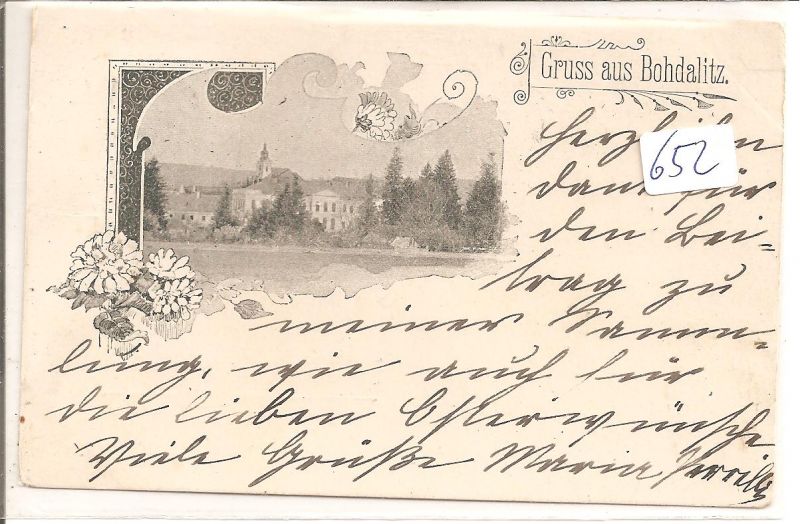 Gruss aus Bohdalitz.
652
Herzlichen
Dank für
den Bei=
trag zu
meiner Samm=
lung, wie auch für
die lieben Osterwünsche
Viele Grüße Maria